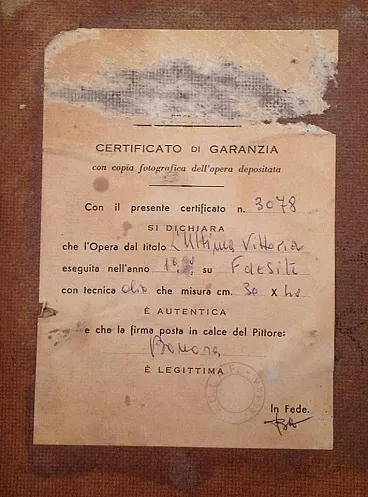 CERTIFICATO DI GARANZIA
con copia fotografica dell'opera depositata
Con il presente certificato n. 3078
SI DICHIARA
che l'Opera dal titolo L'Ultima Vittoria
eseguita nell'anno su Faesite
con tecnica olio che misura cm. 30 X
È AUTENTICA
e che la firma posta in calce del Pittore:
È LEGITTIMA
In Fede.